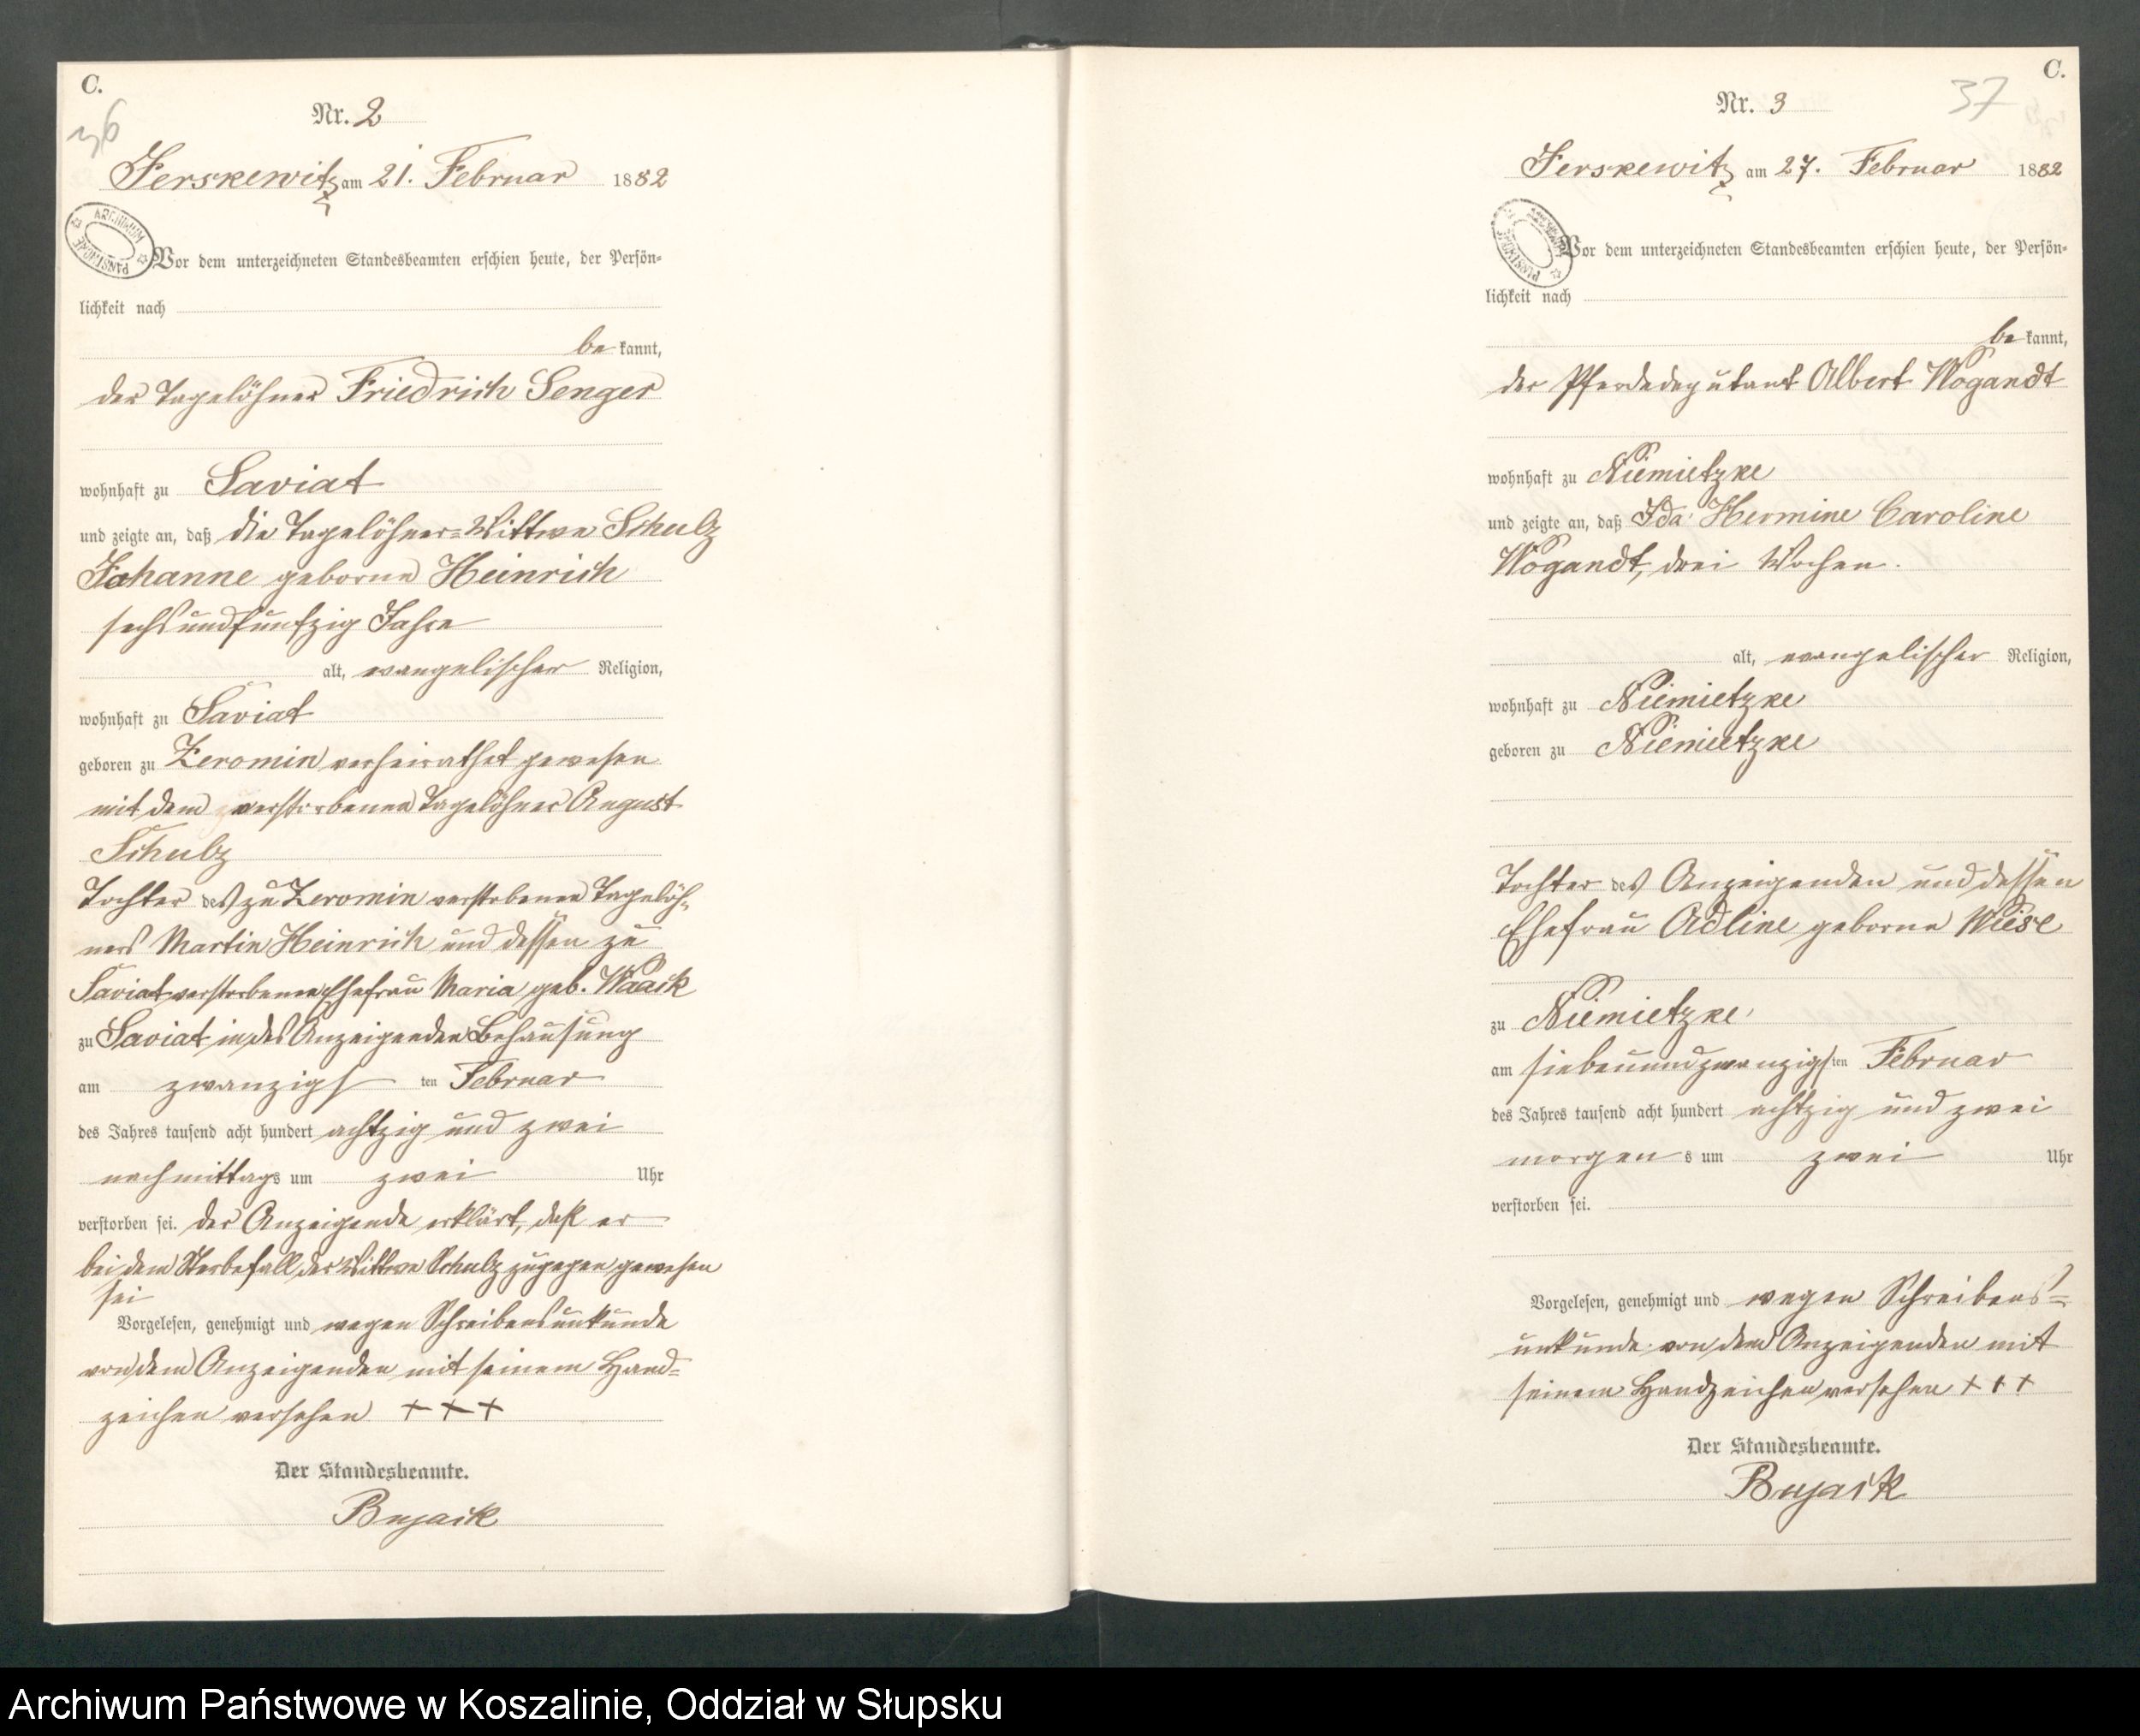 C.
36
Nr. 2
Jerskewitz am 21. Februar 1882
ARCHIWUM PAŃSTWOWE
Vor dem unterzeichneten Standesbeamten erschien heute, der Persön-
lichkeit nach
be kannt,
der Tagelöhner Friedrich Senger
wohnhaft zu Saviat
und zeigte an, daß die Tagelöhner-Wittwe Schulz
Johanne geborne Heinrich
sechsundfünfzig Jahre
alt, evangelischer Religion,
wohnhaft zu Saviat
geboren zu Zeromin verheirathet gewesen
mit dem verstorbenen Tagelöhner August
Schulz
Tochter des zu Zeromin verstorbenen Tagelöh-
ners Martin Heinrich und dessen zu
Saviat verstorbenen Ehefrau Maria geb. Waack
zu Saviat in des Anzeigenden Behausung
am zwanzigs ten Februar
des Jahres tausend acht hundert achtzig und zwei
nachmittags um zwei Uhr
verstorben sei. Der Anzeigende erklärt, daß er
bei dem Sterbefall der Wittwe Schulz zugegen gewesen
sei
Vorgelesen, genehmigt und wegen Schreibensunkunde
von dem Anzeigenden mit seinem Hand-
zeichen versehen + + +
Der Standesbeamte.
Bujack
C.
37
Nr. 3
Jerskewitz am 27. Februar 1882
ARCHIWUM PAŃSTWOWE
Vor dem unterzeichneten Standesbeamten erschien heute, der Persön-
lichkeit nach
be kannt,
der Pferdedeputant Albert Wogandt
wohnhaft zu Niemietzke
und zeigte an, daß Ida Hermine Caroline
Wogandt, drei Wochen
alt, evangelischer Religion,
wohnhaft zu Niemietzke
geboren zu Niemietzke
Tochter des Anzeigenden und dessen
Ehefrau Adline geborne Wiese
zu Niemietzke,
am siebenundzwanzigs ten Februar
des Jahres tausend acht hundert achtzig und zwei
morgen s um zwei Uhr
verstorben sei.
Vorgelesen, genehmigt und wegen Schreibens-
unkunde von dem Anzeigenden mit
seinem Handzeichen versehen + + +
Der Standesbeamte.
Bujack
Archiwum Państwowe w Koszalinie, Oddział w Słupsku